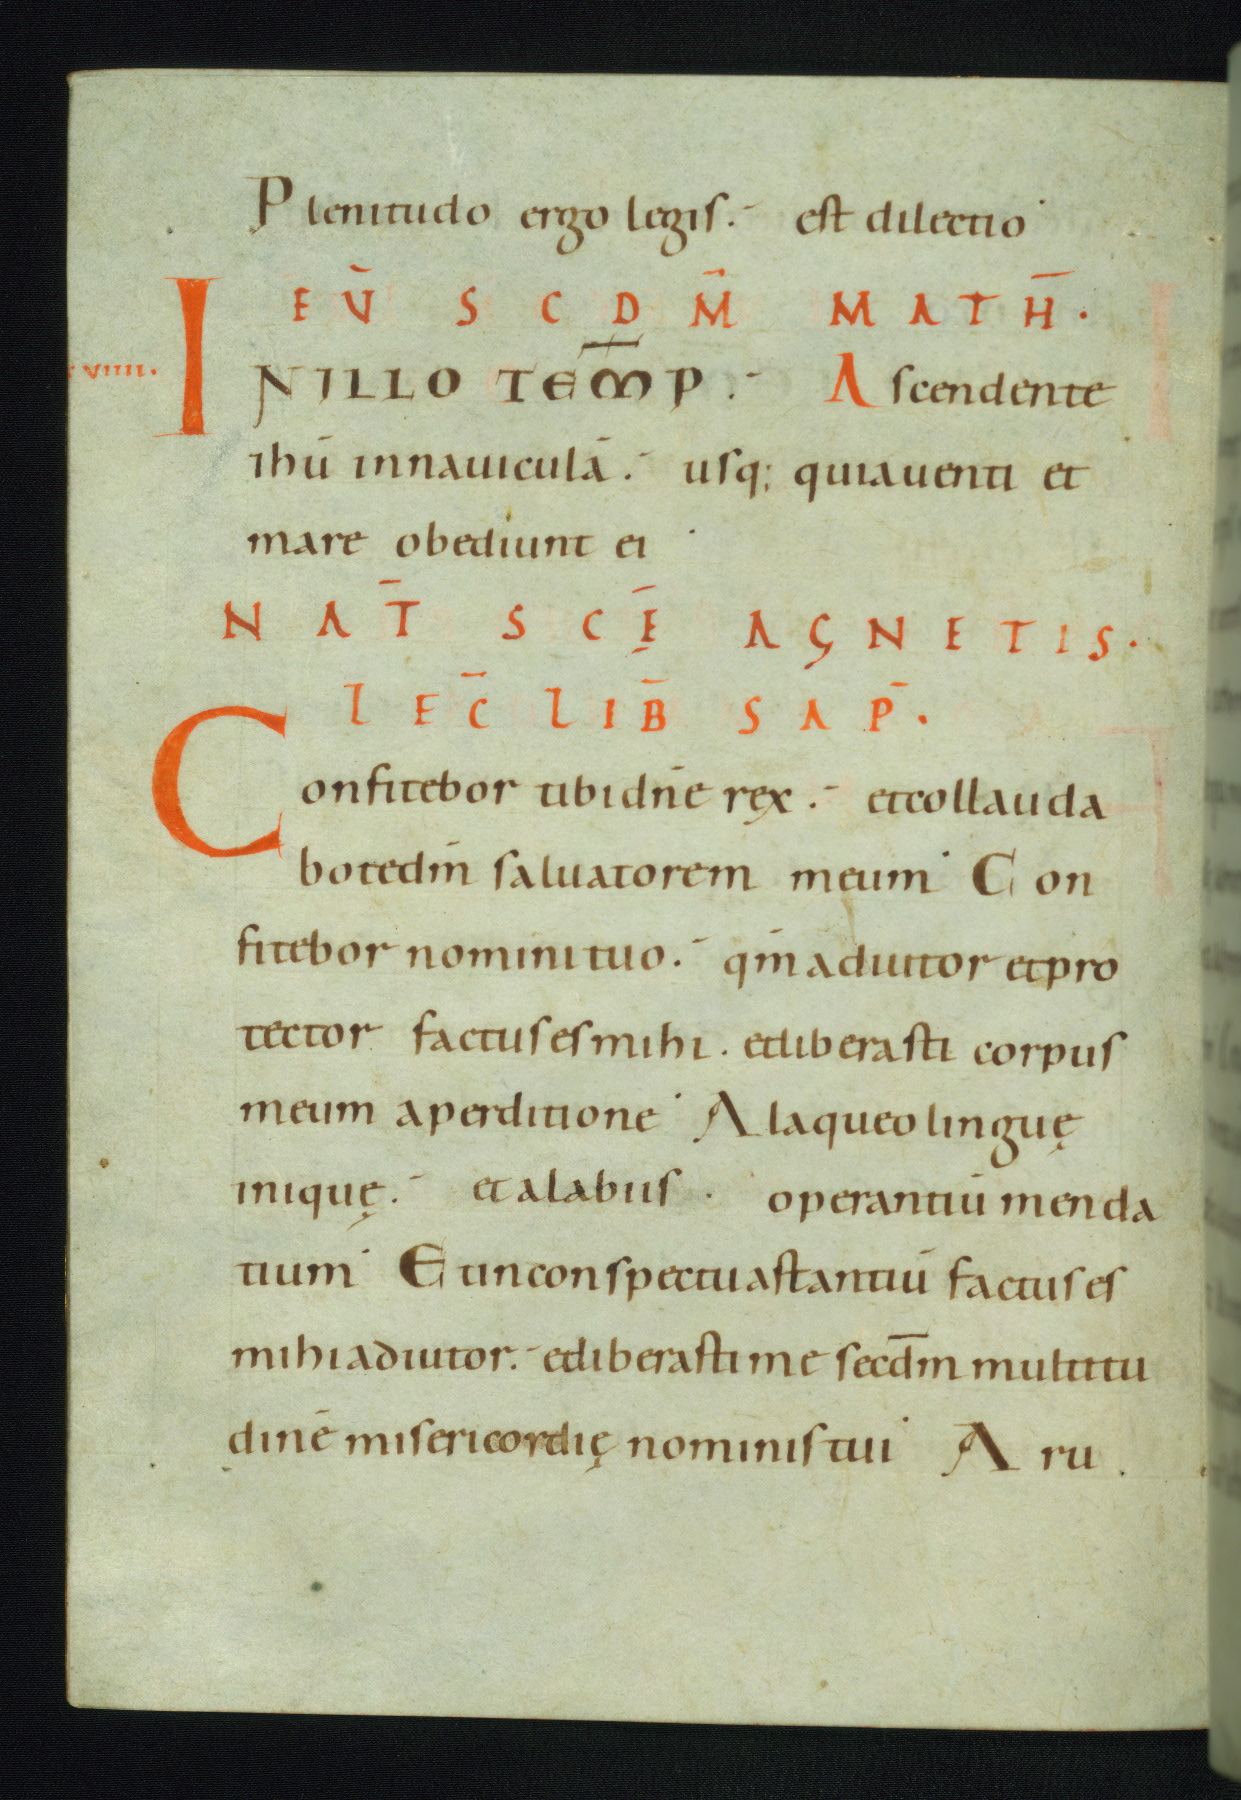 Plenitudo ergo legis. est dilectio
EṼ SCDM̃ MATH̃.
viiii. INILLO TEMP̃. Ascendente
ihū innauiculā. usq; quiauenti et
mare obediunt ei
NAT̄ SCĘ̄ AGNETIS.
LEC̄ LIB̄ SAP̄.
Confitebor tibidn̄e rex. etcollauda
botedm̄ saluatorem meum Con
fitebor nominituo. qm̄adiutor etpro
tector factusesmihi. etliberasti corpus
meum aperditione Alaqueolinguę
iniquę. etalabiis. operantiū menda
tium Etinconspectuastantiū factuses
mihiadiutor. etliberastime secd̄m multitu
dinē misericordię noministui Aru